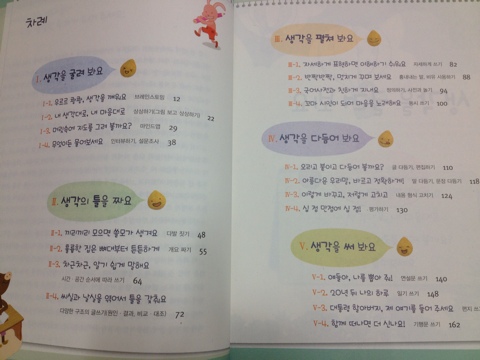 차례
I. 생각을 굴려 봐요
I-1. 우르르 쾅쾅, 생각을 깨워요 브레인스토밍 12
I-2. 내 생각대로, 내 마음대로 상상하기(그림 보고 상상하기) 22
I-3. 머릿속에 지도를 그려 볼까요? 마인드맵 29
I-4. 무엇이든 물어보세요 인터뷰하기, 설문조사 38
II. 생각의 틀을 짜요
II-1. 끼리끼리 모으면 쓸모가 생겨요 다발 짓기 48
II-2. 훌륭한 집은 뼈대부터 튼튼하게 개요 짜기 55
II-3. 차근차근, 알기 쉽게 말해요
시간·공간 순서에 따라 쓰기 64
II-4. 씨실과 날실을 엮어서 틀을 갖춰요
다양한 구조의 글쓰기(원인·결과, 비교·대조) 72
III. 생각을 펼쳐 봐요
III-1. 자세하게 표현하면 이해하기 쉬워요 자세하게 쓰기 82
III-2. 반짝반짝, 멋지게 꾸며 보세요 흉내내는 말, 비유 사용하기 88
III-3. 국어사전과 친하게 지내요 정의하기, 사전과 놀기 94
III-4. 꼬마 시인이 되어 마음을 노래해요 동시 쓰기 100
IV. 생각을 다듬어 봐요
IV-1. 오리고 붙이고 다듬어 볼까요? 글 다듬기, 편집하기 110
IV-2. 아름다운 우리말, 바르고 정확하게! 말 다듬기, 문장 다듬기 118
IV-3. 이렇게 바꾸고, 저렇게 고치고 내용 형식 고치기 124
IV-4. 십 점 만점에 십 점! 평가하기 130
V. 생각을 써 봐요
V-1. 얘들아, 나를 뽑아 줘! 연설문 쓰기 140
V-2. 20년 뒤 나의 하루 일기 쓰기 148
V-3. 대통령 할아버지, 제 얘기를 들어 주세요 편지 쓰기
V-4. 함께 떠나면 더 신나요! 기행문 쓰기 162